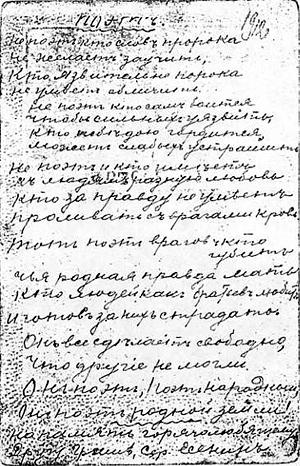 Поэтъ. 1912
Не поэт, кто слов пророка
Не желает заучить,
Кто язвительно порока
Не умеет обличить.
Не поэт, кто сам боится
Чтобы сильных уязвить,
Кто победою гордится,
Может слабых устрашить.
Не поэт и кто имеет
К людям разную любовь
Кто за правду не умеет
Проливать с врагами кровь.
Тот поэт врагов кто
губит
Чья родная правда мать
Кто людей как братьев любит
И готов за них страдать.
Он все сделает свободно,
Что другие не могли.
Он поэт, поэт народный
Он поэт родной земли!
На память горячо любящему
другу Грише. Сер. Есенин.